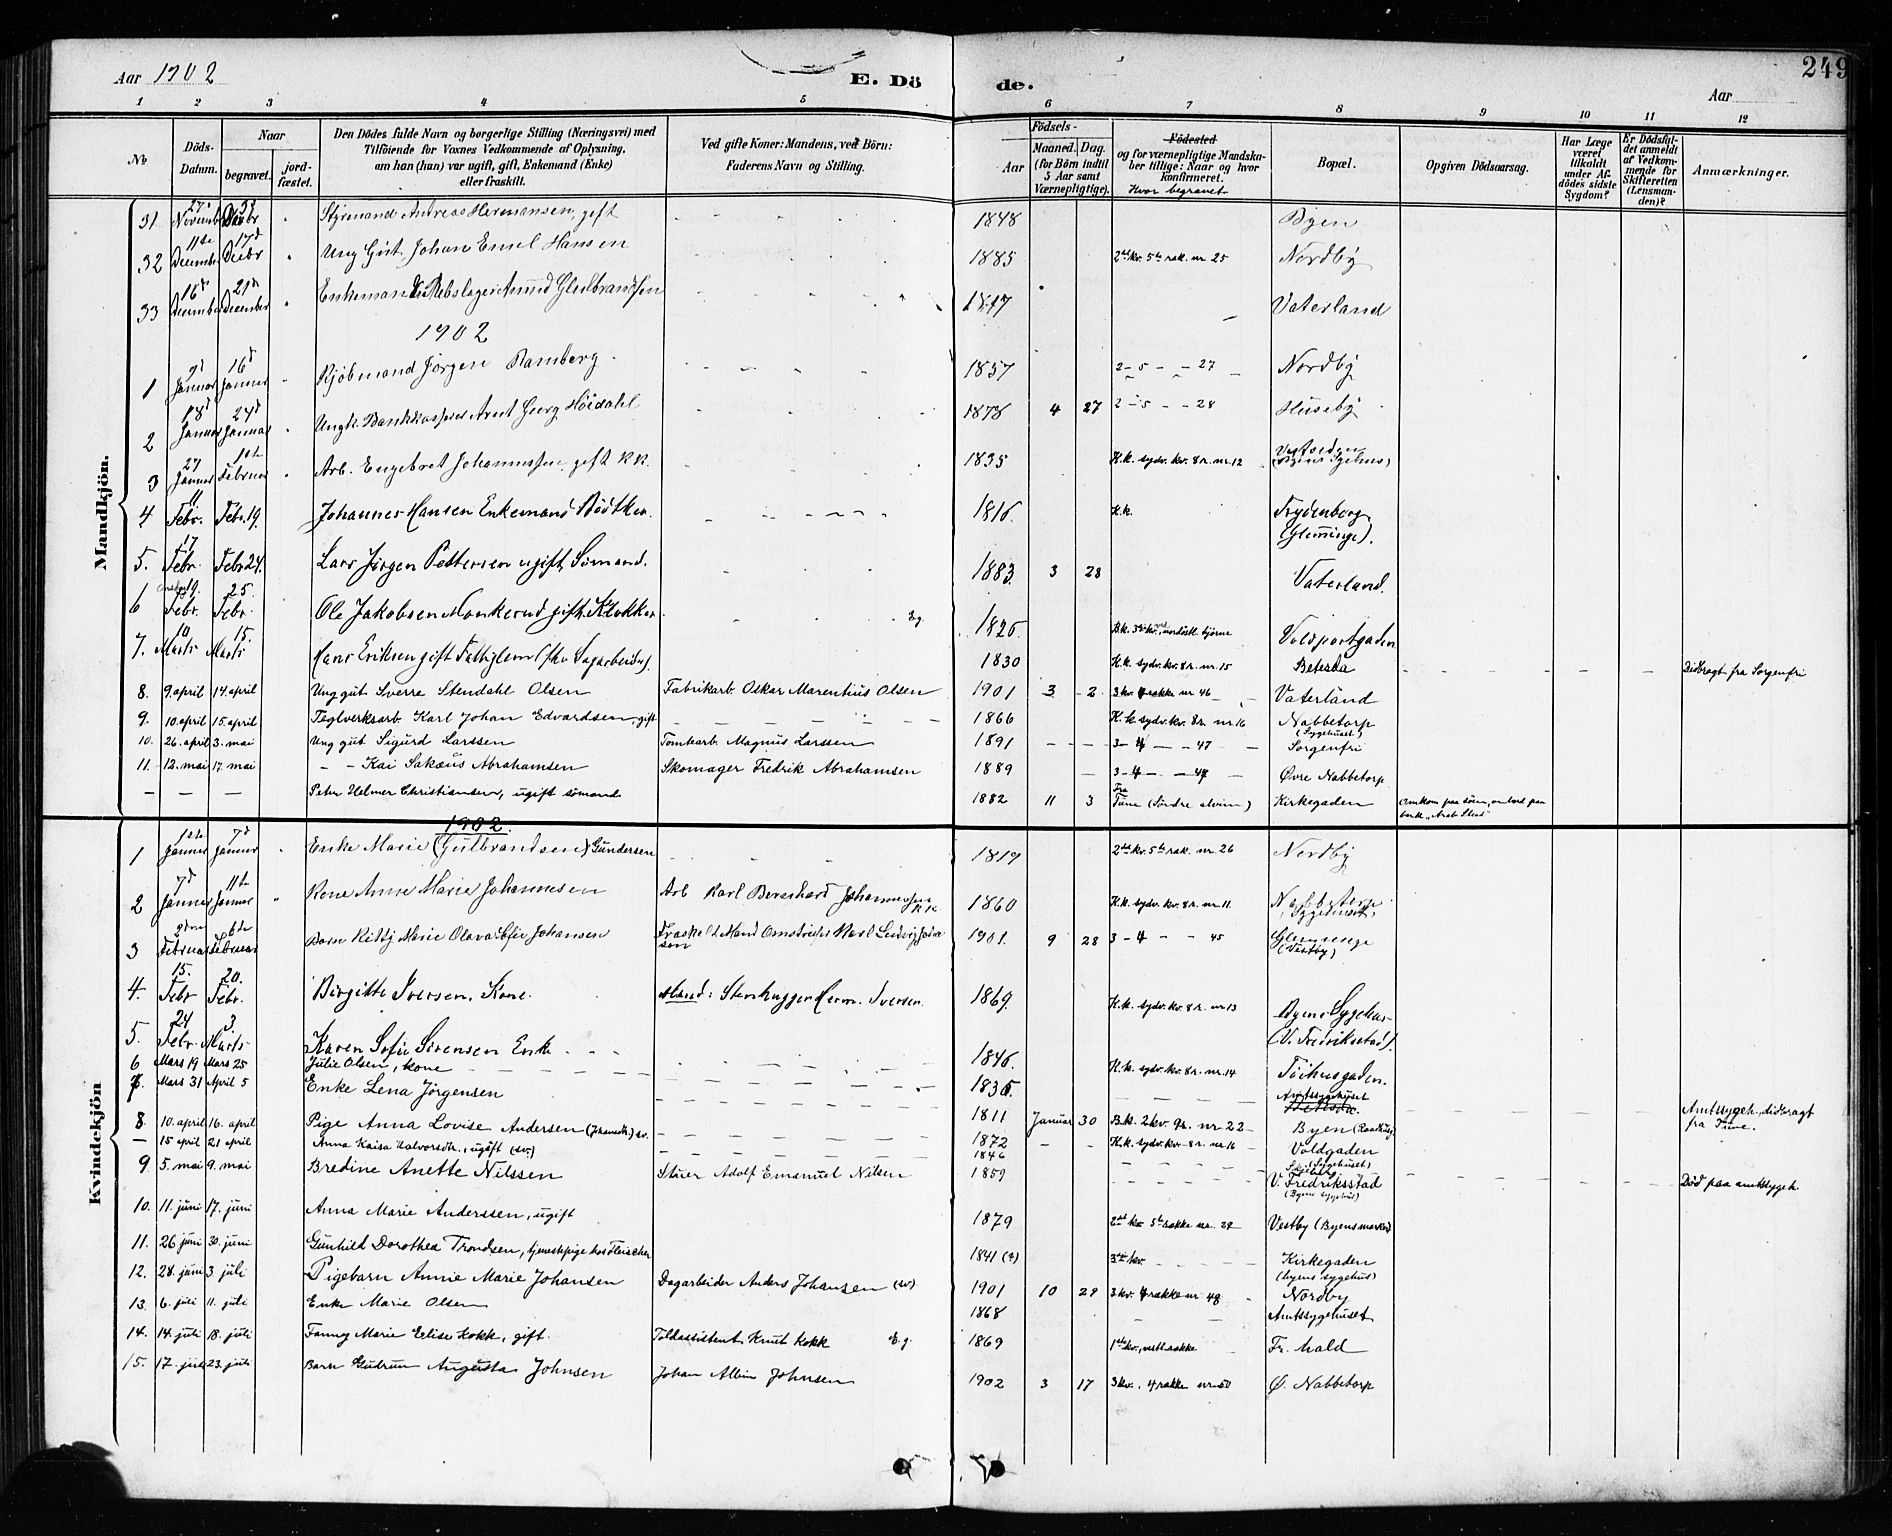 Aar 1902 E. Döde. Aar 249
1 2 3 4 5 6 7 8 9 10 11 12
No
Döds-Datum.
Naar begravet. jordfæstet.
Den Dödes fulde Navn og borgerlige Stilling (Næringsvei) med Tilföiende for Voxnes Vedkommende af Oplysning, om han (hun) var ugift, gift, Enkemand (Enke) eller fraskilt.
Ved gifte Koner: Mandens, ved Börn: Faderens Navn og Stilling.
Födsels-
Aar Maaned. Dag. (for Börn indtil 5 Aar samt Værnepligtige).
Födested og for værnepligtige Mandskaber tillige: Naar og hvor konfirmeret. Hvor begravet
Bopæl.
Opgiven Dödsaarsag.
Har Læge været tilkaldt under Afdödes sidste Sygdom?
Er Dödsfaldet anmeldt af Vedkommende for Skifteretten (Lensmanden)?
Anmærkninger.
Mandkjön.
31 Styrmand Andreas Hermansen, gift 1848 Byen
32 11te Decembr 17d Decbr Ung Gut Johan Emil Hansen 1885 2det kv. 5te rak. nr 25 Nordby
33 16d December 21d December 1847 Vaterland
1902
1 9d Januar 16d Januar Kjöbmand Jörgen Bamberg 1857 2 - 5 - - 27 Nordby
2 18d Januar 24d Januar Ungk. Bankkasserer Arnt Georg Höidahl 1878 4 27 2 - 5 - - 28 Huseby
3 27 Januar 1ste Februar Arb. Engebret Johannessen, gift K.K. 1835 K.k. sydv. kv. 8 r. nr. 12
4 11 Febr. Febr. 19. Johannes Hansen Enkemand Bödtker 1816. K.k. Trydenborg (Glemminge).
5. 17 Febr. Febr 24. Lars Jörgen Pettersen ugift, Sömand. 1883. 3 28 Vaterland.
6 19. Febr. 25. Febr. Ole Jakobsen Monkerud gift. Klokker Eg. 1825. Voldportgaden
7. 10 Marts 15. Marts Hans Eriksen gift Fattiglem (fhv. Sagarbeider). 1830 K.k. sydv. kv. 8 r. nr. 15 Betesda Didbragt fra Sorgenfri
8. 9. april 14. april Ung gut Sverre Stendahl Olsen Fabrikarb. Oskar Marentius Olsen 1901 3 2 3 kv. 4 rakke nr 46 Vaterland
9. 10. april 15. april Teglverksarb. Karl Johan Edvardsen, gift 1866 K.k. sydv. kv. 8 r. nr. 16 Nabbetorp (Sygehuset)
10. 26. april 3. mai Ung gut Sigurd Larssen Tomtearb. Magnus Larssen 1891 3 - 4 - - 47 Sorgenfri
11. 12. mai 17. mai - - Kai Sakæus Abrahamsen Skomager Fredrik Abrahamsen 1889 3 - 4 - - 49 Övre Nabbetorp
- - - Peter Helmer Christiansen, ugift sömand 1882 11 3 fra Tune (Söndre alvim) Kirkegaden Omkom paa söen, ombord paa bark „Arab Steed"
Kvindekjön
1902.
1 1ste Januar 7d Januar Enke Marie (Gulbrandsen) Gundersen 1819 2det kv. 5te rak. nr. 26 Nordby
2 7d Januar 11te Januar Kone Anne Marie Johannesen Arb Karl Bernhard Johannessen K.K. 1860 K.k. sydv. kv. 8 r. nr 11. Nabbetorp (Sygehuset)
3 Februar 6te Februar Barn Kitty Marie Olava Johansen 1901. 9 28 3 - 4 - - 45 Glemminge (Vestby)
4. 15. Febr 20. Febr. Birgitte Iversen. Kone. Mand: Stenhugger Herm. Iversen 1869. K.k. sydv. kv. 8 r. nr. 13 Byens Sygehus (V. Fredriksstad).
5. 24 Febr. 3. Marts Karen Sofie Sörensen Enke 1846. Töihusgaden.
6 Mars 19 Mars 25 Julie Olsen, kone K.k. sydv. kv. 8 r. nr. 14
7. Mars 31 April 5 Enke Lena Jörgensen 1835. Amtssygehuset
8. 10. april 16. april Pige Anna Lovise Andersen (Johansdtr.) sv. 1811 Januar 30 B.k. 2 kv. 9 r. nr. 22 Byen (Raadhusg) Amtssygeh., didbragt fra Tune.
- 15 april 21 april Anna Kaisa Halvorsdtr., ugift (sv.) 1872 K.k. sydv. kv. 8 r. nr. 16 Voldgaden (Sygehuset)
9 5. mai 9. mai Bredine Anette Nilssen Stuer Adolf Emanuel Nilsen 1846 1859 V. Fredriksstad (Byens sygehus) Död paa amtssygeh.
10. 11. juni 17. juni Anna Marie Anderssen, ugift 1879 2det kv 5te rakke nr. 29 Vestby (Byens marker)
11. 26 juni 30. juni Gunhild Dorothea Trondsen, tjenestpige hos Fleischer 1841 (?) 3die kv. Kirkegaden (byens sygehus)
12. 28. juni 3. juli Pigebarn Annie Marie Johansen Dagarbeider Anders Johansen (sv) 1901 10 29 3 kv. 4 rakke nr 48 Nordby
13. 6. juli 11. juli Enke Marie Olsen 1868 Amtssygehuset
14. 14. juli 18. juli Fanny Marie Elise Kokk, gift. Toldassistent Knut Kokk E.g. 1869 1ste kv., vestl. rakke Fr. hald
15. 17. juli 23. juli Barn Gudrun Augusta Johnsen Johan Albin Johnsen 1902 3 17 3 kv. 4 rakke nr. 50 Ö. Nabbetorp